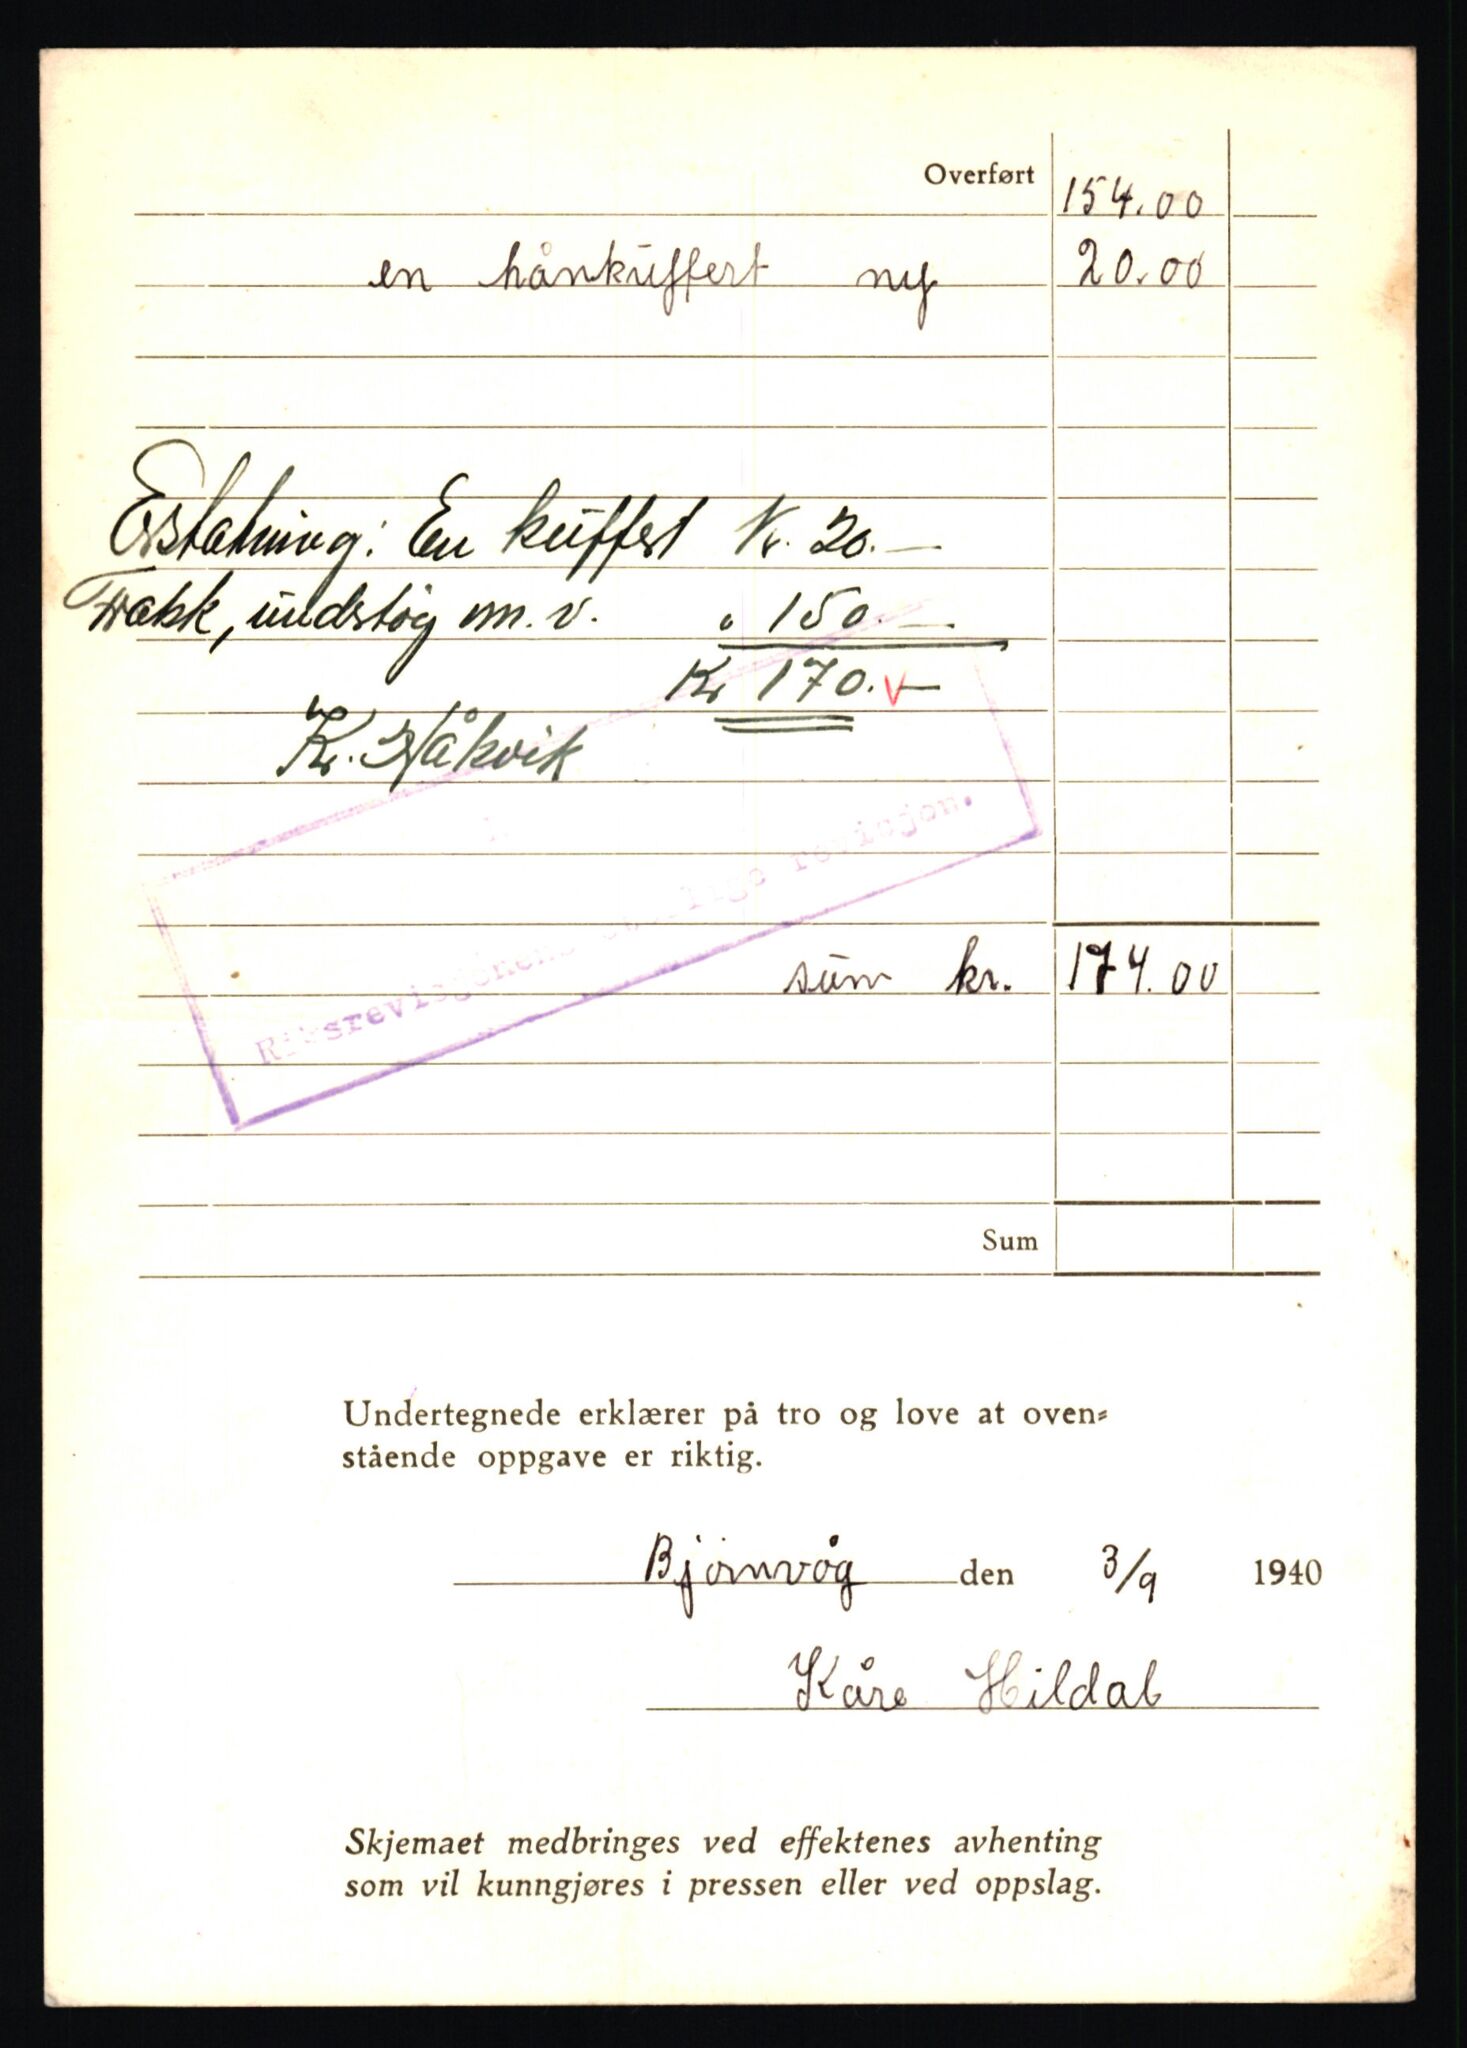 Overført 154.00
en hånkuffert ny 20.00
Erstatning: En kuffert Kr. 20.—
Frakk, undstøg m.v. " 150.—
Kr 170.— V
Kr. Håkvik
Riksrevisjonens revisjon.
sum kr. 174.00
Sum
Undertegnede erklærer på tro og love at oven-
stående oppgave er riktig.
Bjørnvåg den 3/9 1940
Kåre Hildal
Skjemaet medbringes ved effektenes avhenting
som vil kunngjøres i pressen eller ved oppslag.